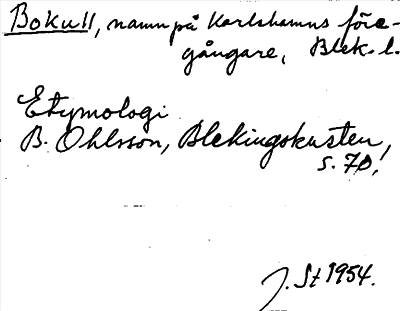 Bokull, namn på Karlshamns före-
gångare, Blek. l.
Etymologi
B. Ohlsson, Blekingskusten,
s. 70!
J. St 1954.